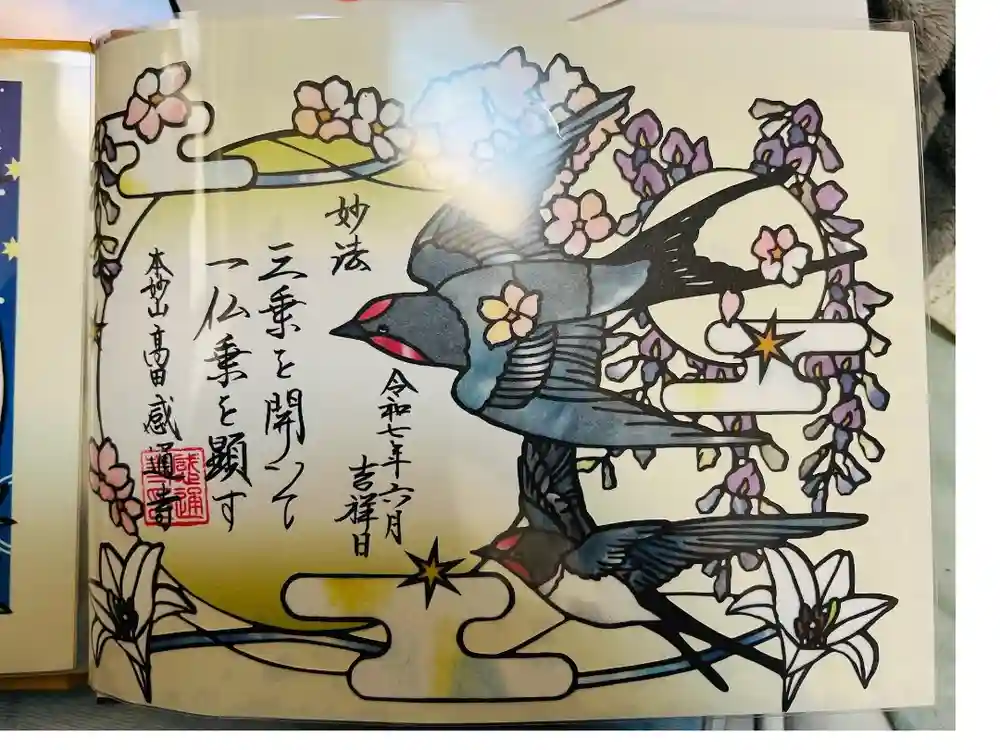 妙法
三乗を開いて
一仏乗を顕す
令和七年六月
吉祥日
本妙山 高田 感通寺
感通